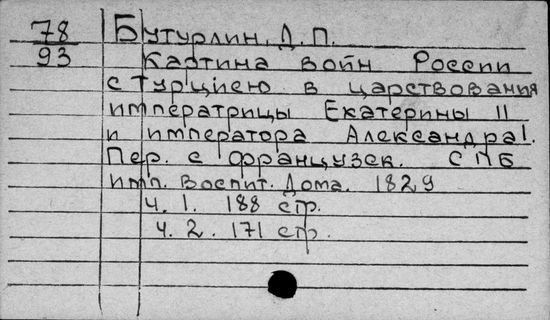 78 Бутурлин, Д.П.
93 Картина войн России
с Турциею в царствования
императрицы Екатерины II
и императора Александра I.
Пер. с французск. СПБ
имп. Воспит. Дома. 1829
ч. 1. 188 стр.
ч. 2. 171 стр.